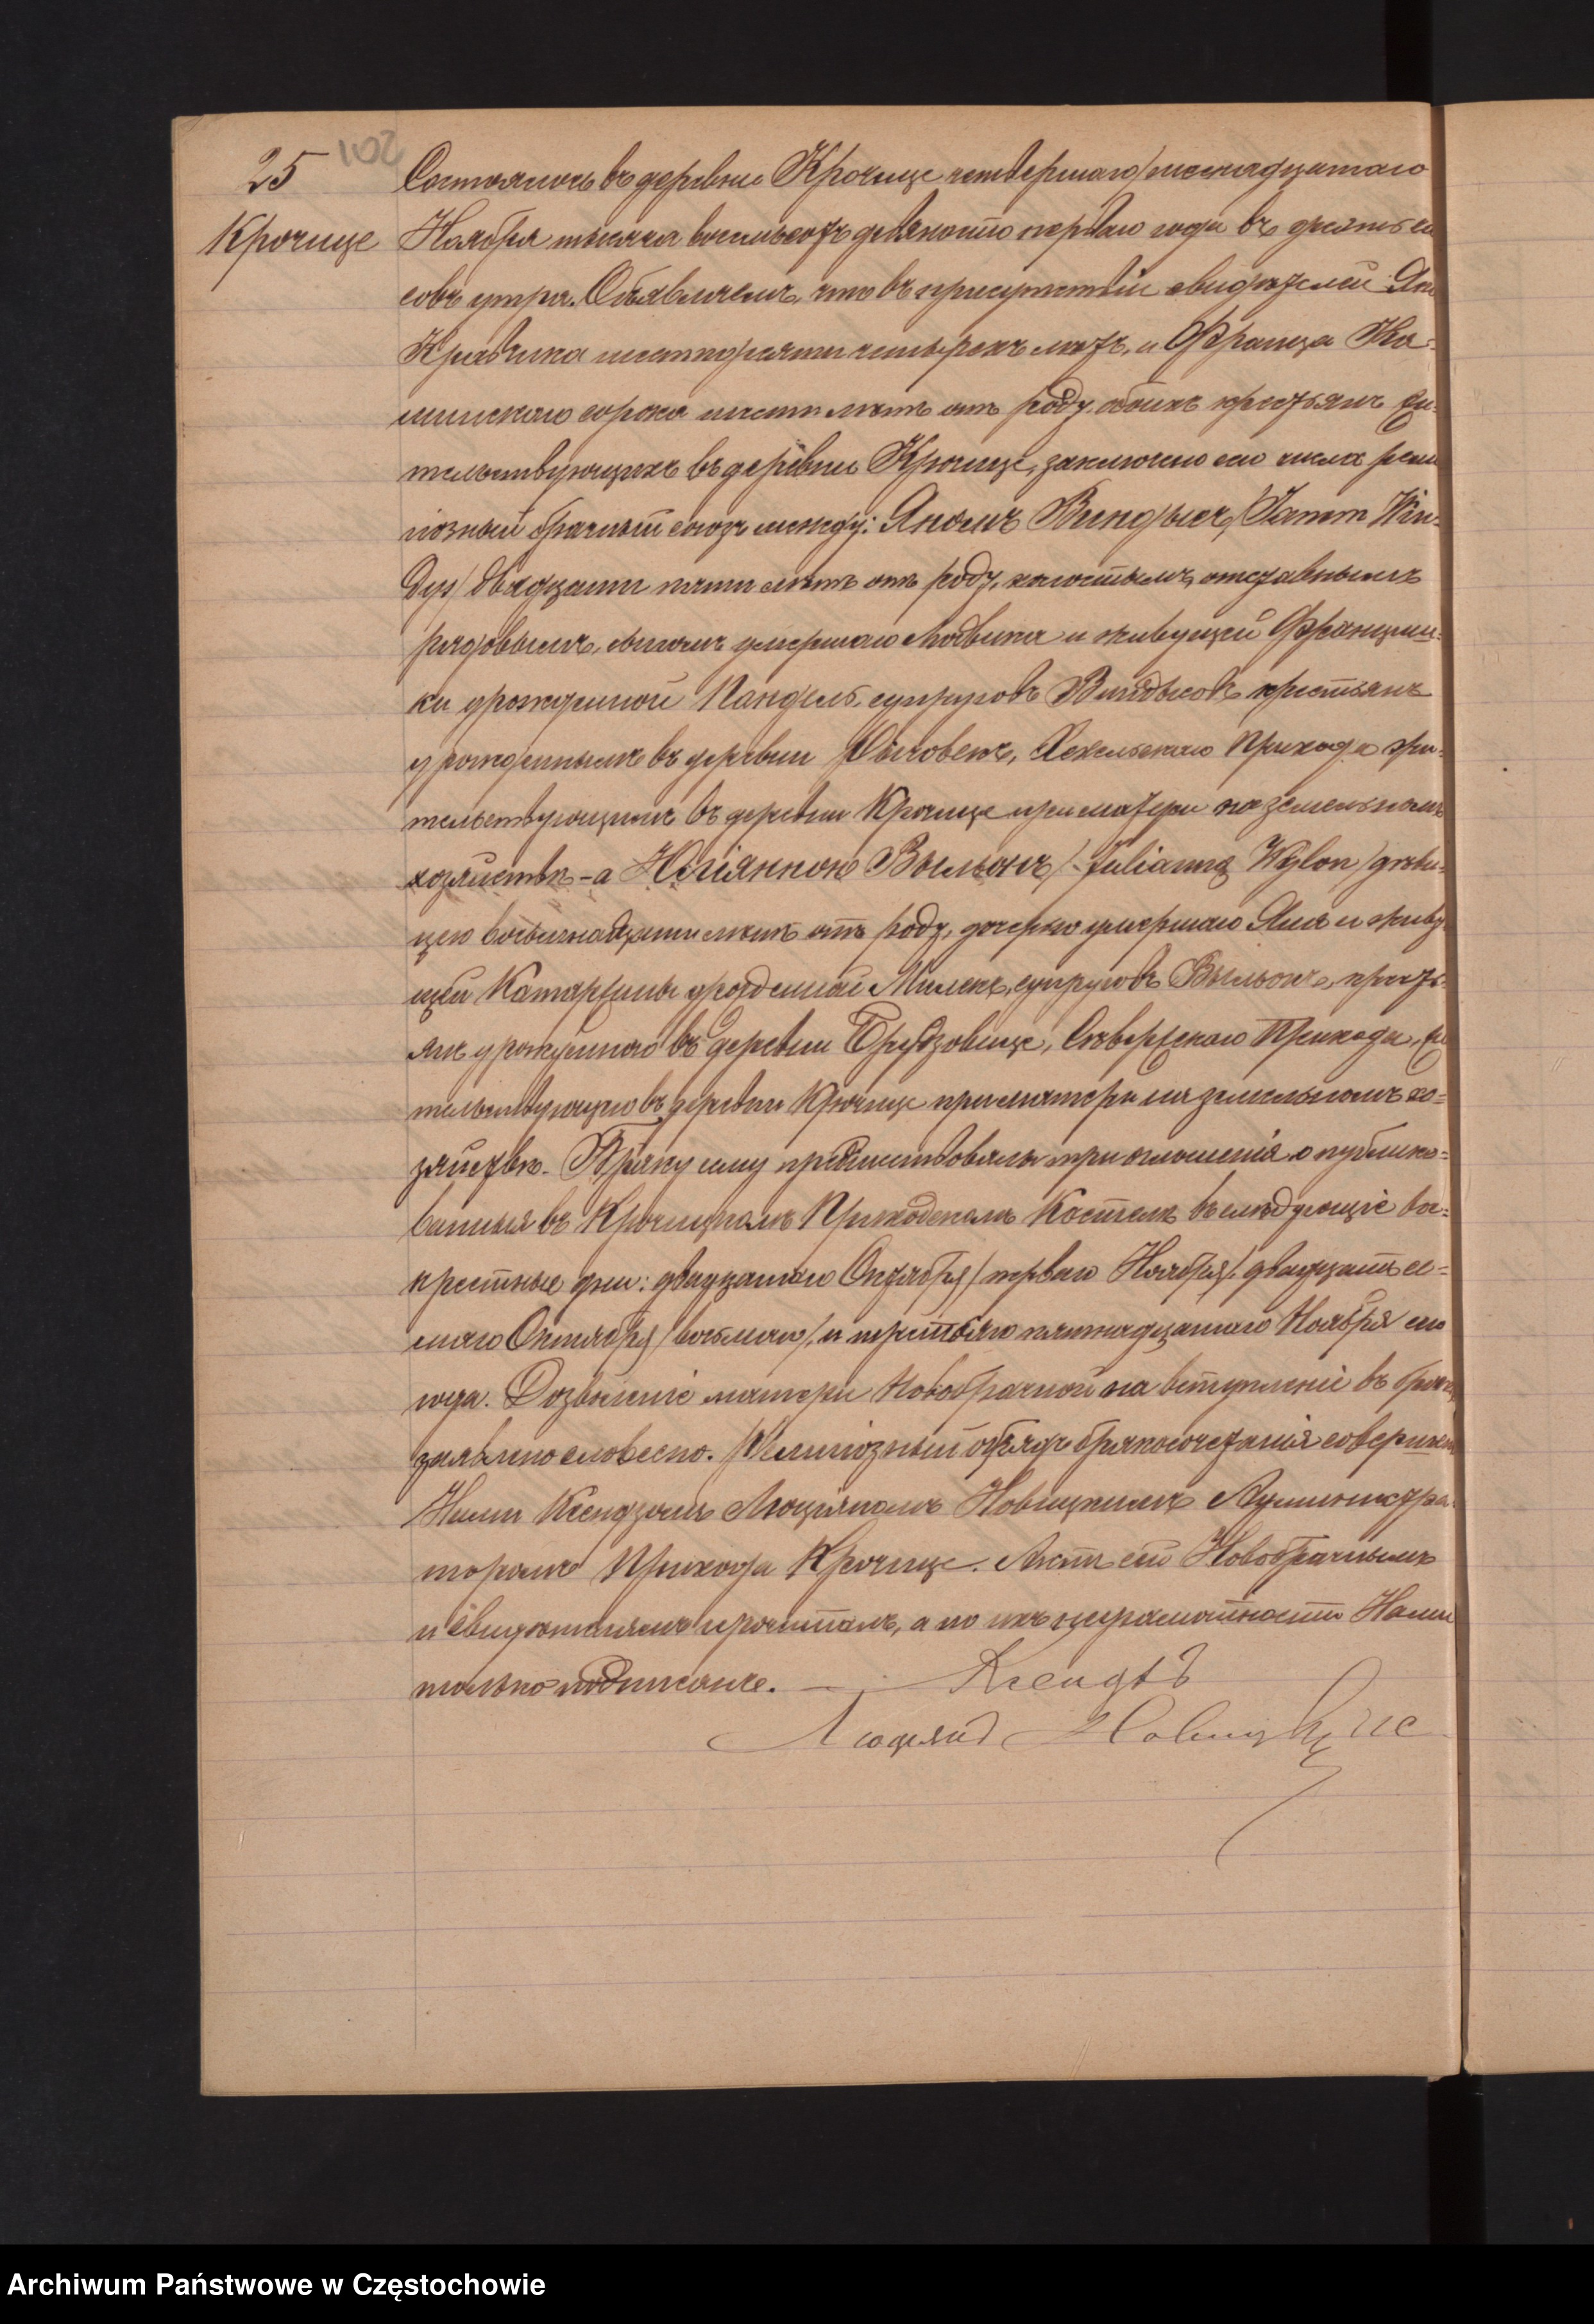 25
102
Крочице
Состоялось въ деревни Крочице четвертаго/шестнадцатаго
Ноября тысяча восемьсотъ девяносто перваго года въ десять ча
совъ утра. Объявляемъ, что въ присутствіи свидѣтелей Яна
Кравчика шестидесяти четырехъ лѣтъ, и Франца Ка-
минскаго сорока шести лѣтъ отъ роду обоихъ крестьянъ жи-
тельствующихъ въ деревни Крочице, заключено сего числа рели
гіозный брачный союзъ между: Яномъ Виндысъ /Janem Win-
dys/ двадцати пяти лѣтъ отъ роду, холостымъ, отставнымъ
рядовымъ, сыномъ умершаго Людвика и живущей Францишъ-
ки урожденной Пандель, супруговъ Виндысовъ крестьянъ
урожденнымъ въ деревни Прихода жи-
тельствующимъ въ деревни Крочице при матери на земельномъ
хозяйствѣ - а Юліянною Вылонъ /Julianną Wylon/ дѣви-
цею восьмнадцати лѣтъ отъ роду, дочерью умершаго Яна и живу
щей Катаржины урожденной Милекъ, супруговъ Вылонъ, кресть-
янъ урожденною въ деревни Брудзовице, Сѣвержскаго Прихода, жи
тельствующую въ деревни Крочице при матери на земельномъ хо=
зяйствѣ. Браку сему предшествовали три оглашенія опублико=
ванныя въ Крочицкомъ Приходскомъ Костелѣ въ слѣдующіе во=
кресные дни: двадцатаго Октября /перваго Ноября/ двадцать се=
маго Октября /восьмаго/ и третьяго пятнадцатаго Ноября сего
года. Дозвленіе матери Новобрачной на вступленіе въ бракъ
заявлено словесно. Религіозный обрядъ бракосочетанія совершенъ
Нами Ксендзомъ Люціяномъ Новицкимъ Администра
торомъ Прихода Крочице. Актъ сей Новобрачнымъ
и свидѣтелямъ прочитанъ, а по ихъ неграмотности Нами
только подписанъ. — Ксендзъ
Люціянъ Новицкій
Archiwum Państwowe w Częstochowie